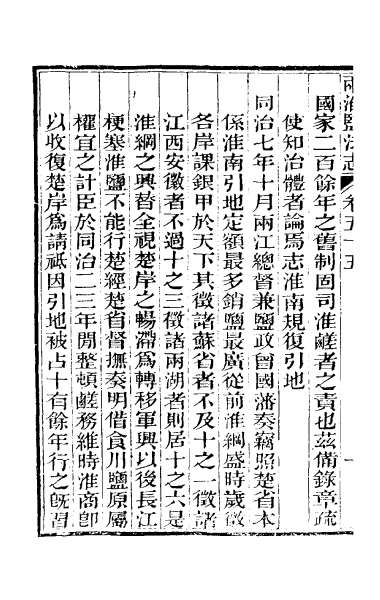 兩淮鹽法志 卷五十五 一
國家二百餘年之舊制固司淮鹺者之責也茲備錄章疏
使知治體者論焉志淮南規復引地
同治七年十月兩江總督兼鹽政曾國藩奏竊照楚省本
係淮南引地定額最多銷鹽最廣從前淮綱盛時歲徵
各岸課銀甲於天下其徵諸蘇省者不及十之一徵諸
江西安徽者不過十之三徵諸兩湖者則居十之六是
淮綱之興替全視楚岸之暢滯爲轉移軍興以後長江
梗塞淮鹽不能行楚經楚省督撫奏明借食川鹽原屬
權宜之計臣於同治二三年閒整頓鹺務維時淮商卽
以收復楚岸爲請祗因引地被占十有餘年行之旣習